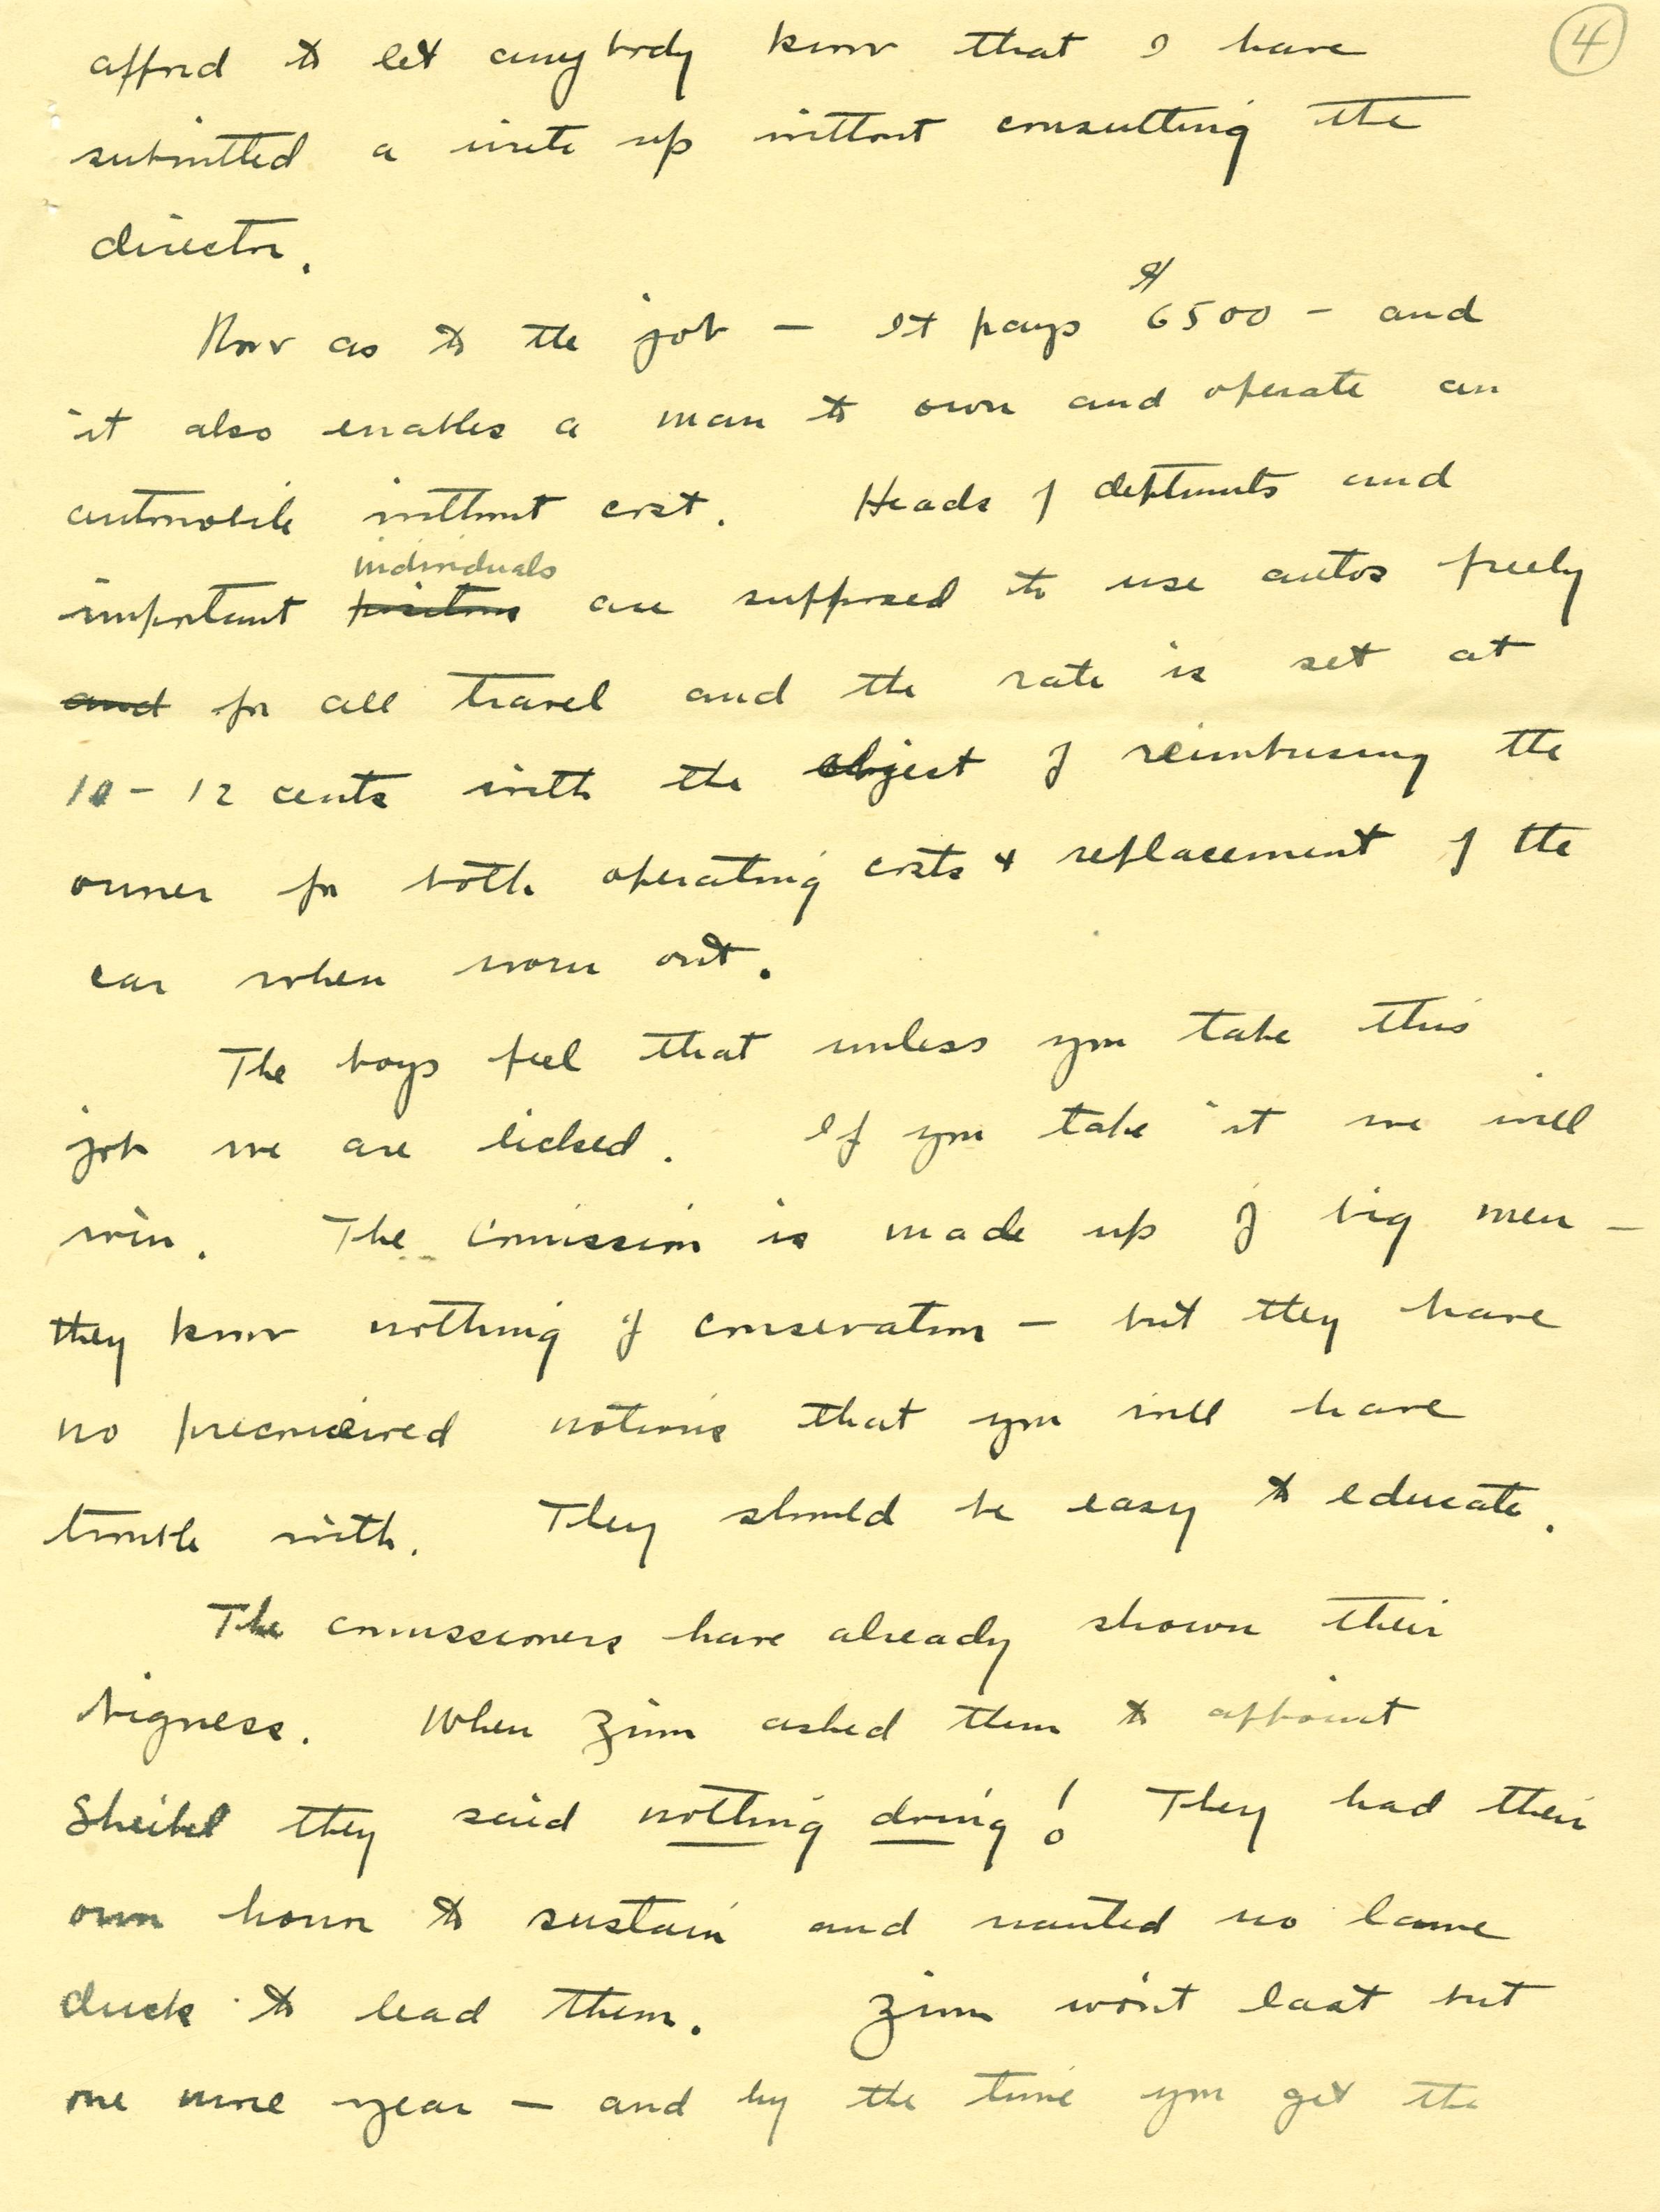 4
afford to let anybody know that I have
submitted a write up without consulting the
director.
Now as to the job — It pays $6500 – and
it also enables a man to own and operate an
automobile without cost. Heads of deptments and
individuals
important positions are supposed to use autos freely
and for all travel and the rate is set at
10 – 12 cents with the object of reimbursing the
owner for both operating costs & replacement of the
car when worn out.
The boys feel that unless you take this
job we are licked. If you take it we will
win. The Commission is made up of big men –
they know nothing of conservation – but they have
no preconceived notions that you will have
trouble with. They should be easy to educate.
The commissioners have already shown their
bigness. When Zimm asked them to appoint
Sheibel they said nothing doing! They had their
own honor to sustain and wanted no lame
duck to lead them. Zimm won't last but
one more year – and by the time you get the